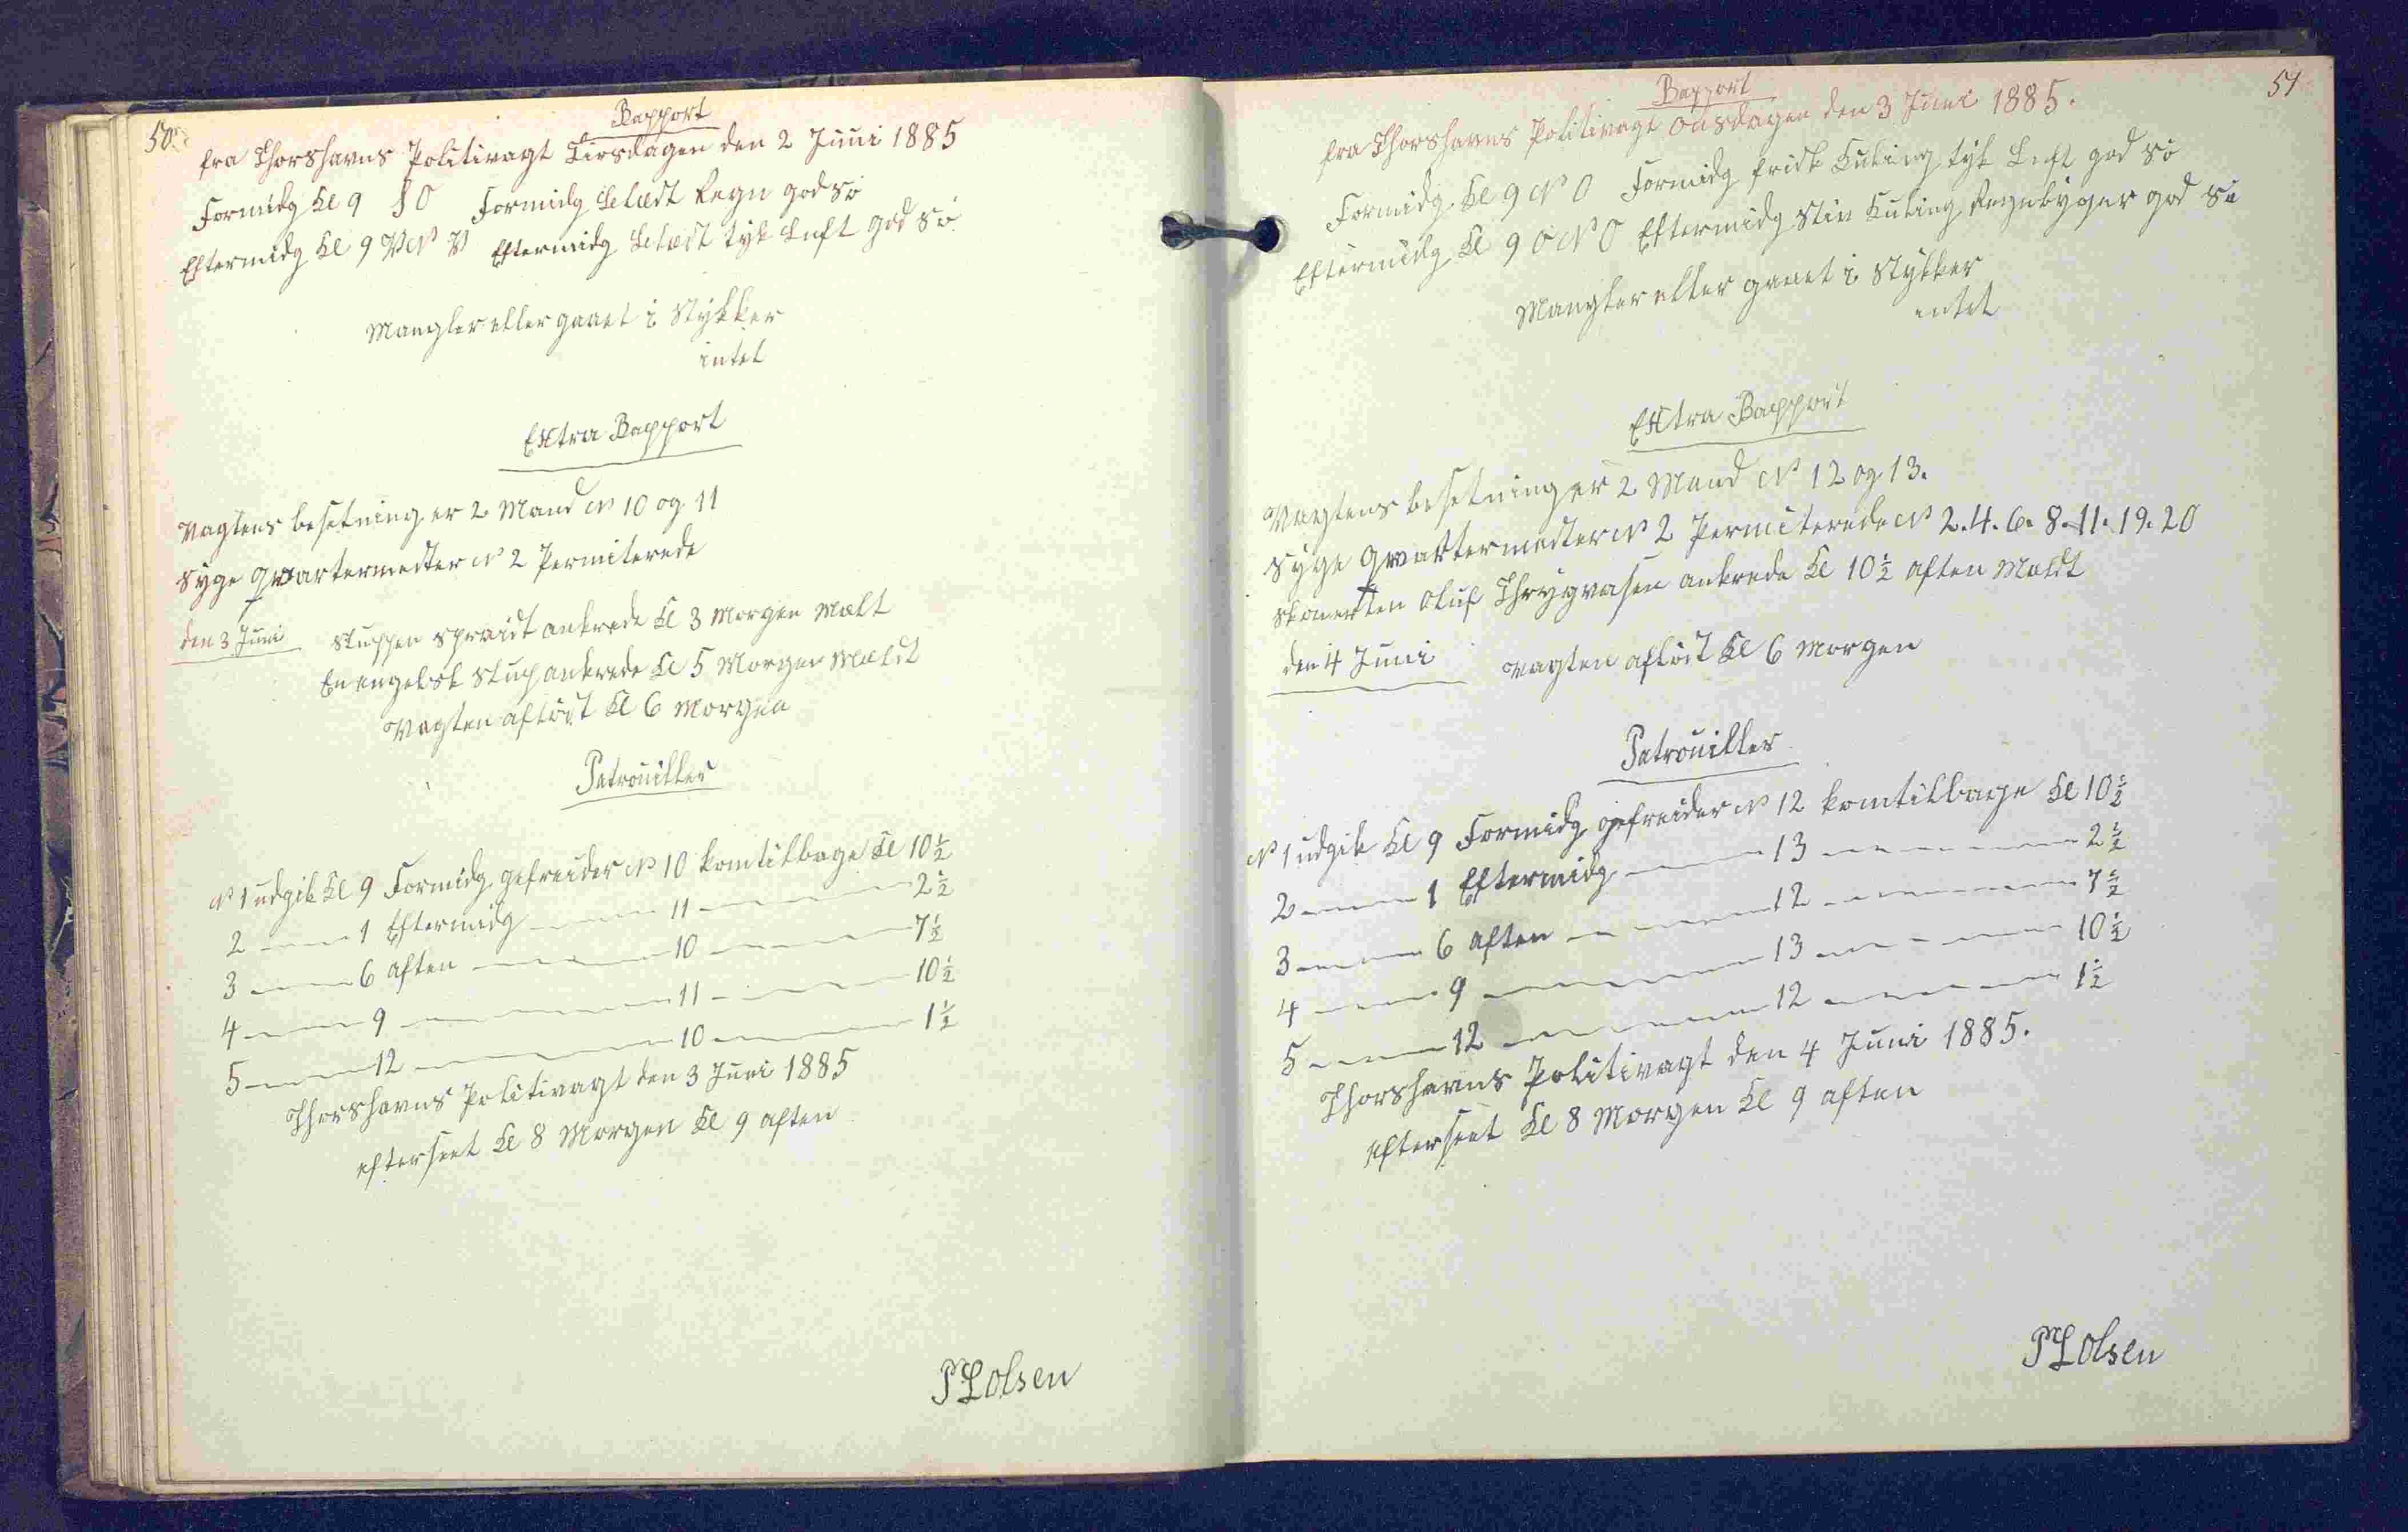 50.
Rapport
fra Thorshavns Politivagt Tirsdagen den 2 Juni 1885
Formidg Kl 9 SO Formidg Ladt Regn god Sø
Eftermidg Kl 9 VNV Eftermidg tyk Luft god Sø
Mangler eller gaaet i Stykker
intet
Extra Rapport
Vagtens besetning er 2 Mand No 10 og 11
Syge Qvartermester No 2 Permiterede
den 3 Juni Sluppen ankrede Kl 3 Morgen Mælt
En engelsk Slup ankrede Kl 5 Morgen Mældt
Vagten afløst Kl 6 Morgen
Patrouiller
No 1 udgik Kl 9 Formidg gefreider No 10 kom tilbage Kl 10½
2 — 1 Eftermidg — 11 — 2½
3 — 6 aften — 10 — 7½
4 — 9 — 11 — 10½
5 — 12 — 10 — 1½
Thorshavns Politivagt den 3 Juni 1885
efterseet Kl 8 Morgen Kl 9 aften
P L Olsen
51
Rapport
fra Thorshavns Politivagt Onsdagen den 3 Juni 1885.
Formidg Kl 9 NO Formidg frisk Kuling tyk Luft god Sø
Eftermidg Kl 9 ONO Eftermidg Stiv Kuling Regnbyger god Sø
Mangler eller gaaet i Stykker
intet
Extra Rapport
Vagtens besetning er 2 Mand No 12 og 13.
Syge Qvartermester No 2 Permiterede No 2. 4. 6. 8. 11. 19. 20
Skonerten Oluf Thrygvasen ankrede Kl 10½ aften Mældt
den 4 Juni Vagten afløst Kl 6 Morgen
Patrouiller
No 1 udgik Kl 9 Formidg gefreider No 12 kom tilbage Kl 10½
2 — 1 Eftermidg — 13 — 2½
3 — 6 aften — 12 — 7½
4 — 9 — 13 — 10½
5 — 12 — 12 — 1½
Thorshavns Politivagt den 4 Juni 1885.
efterseet Kl 8 Morgen Kl 9 aften
P L Olsen